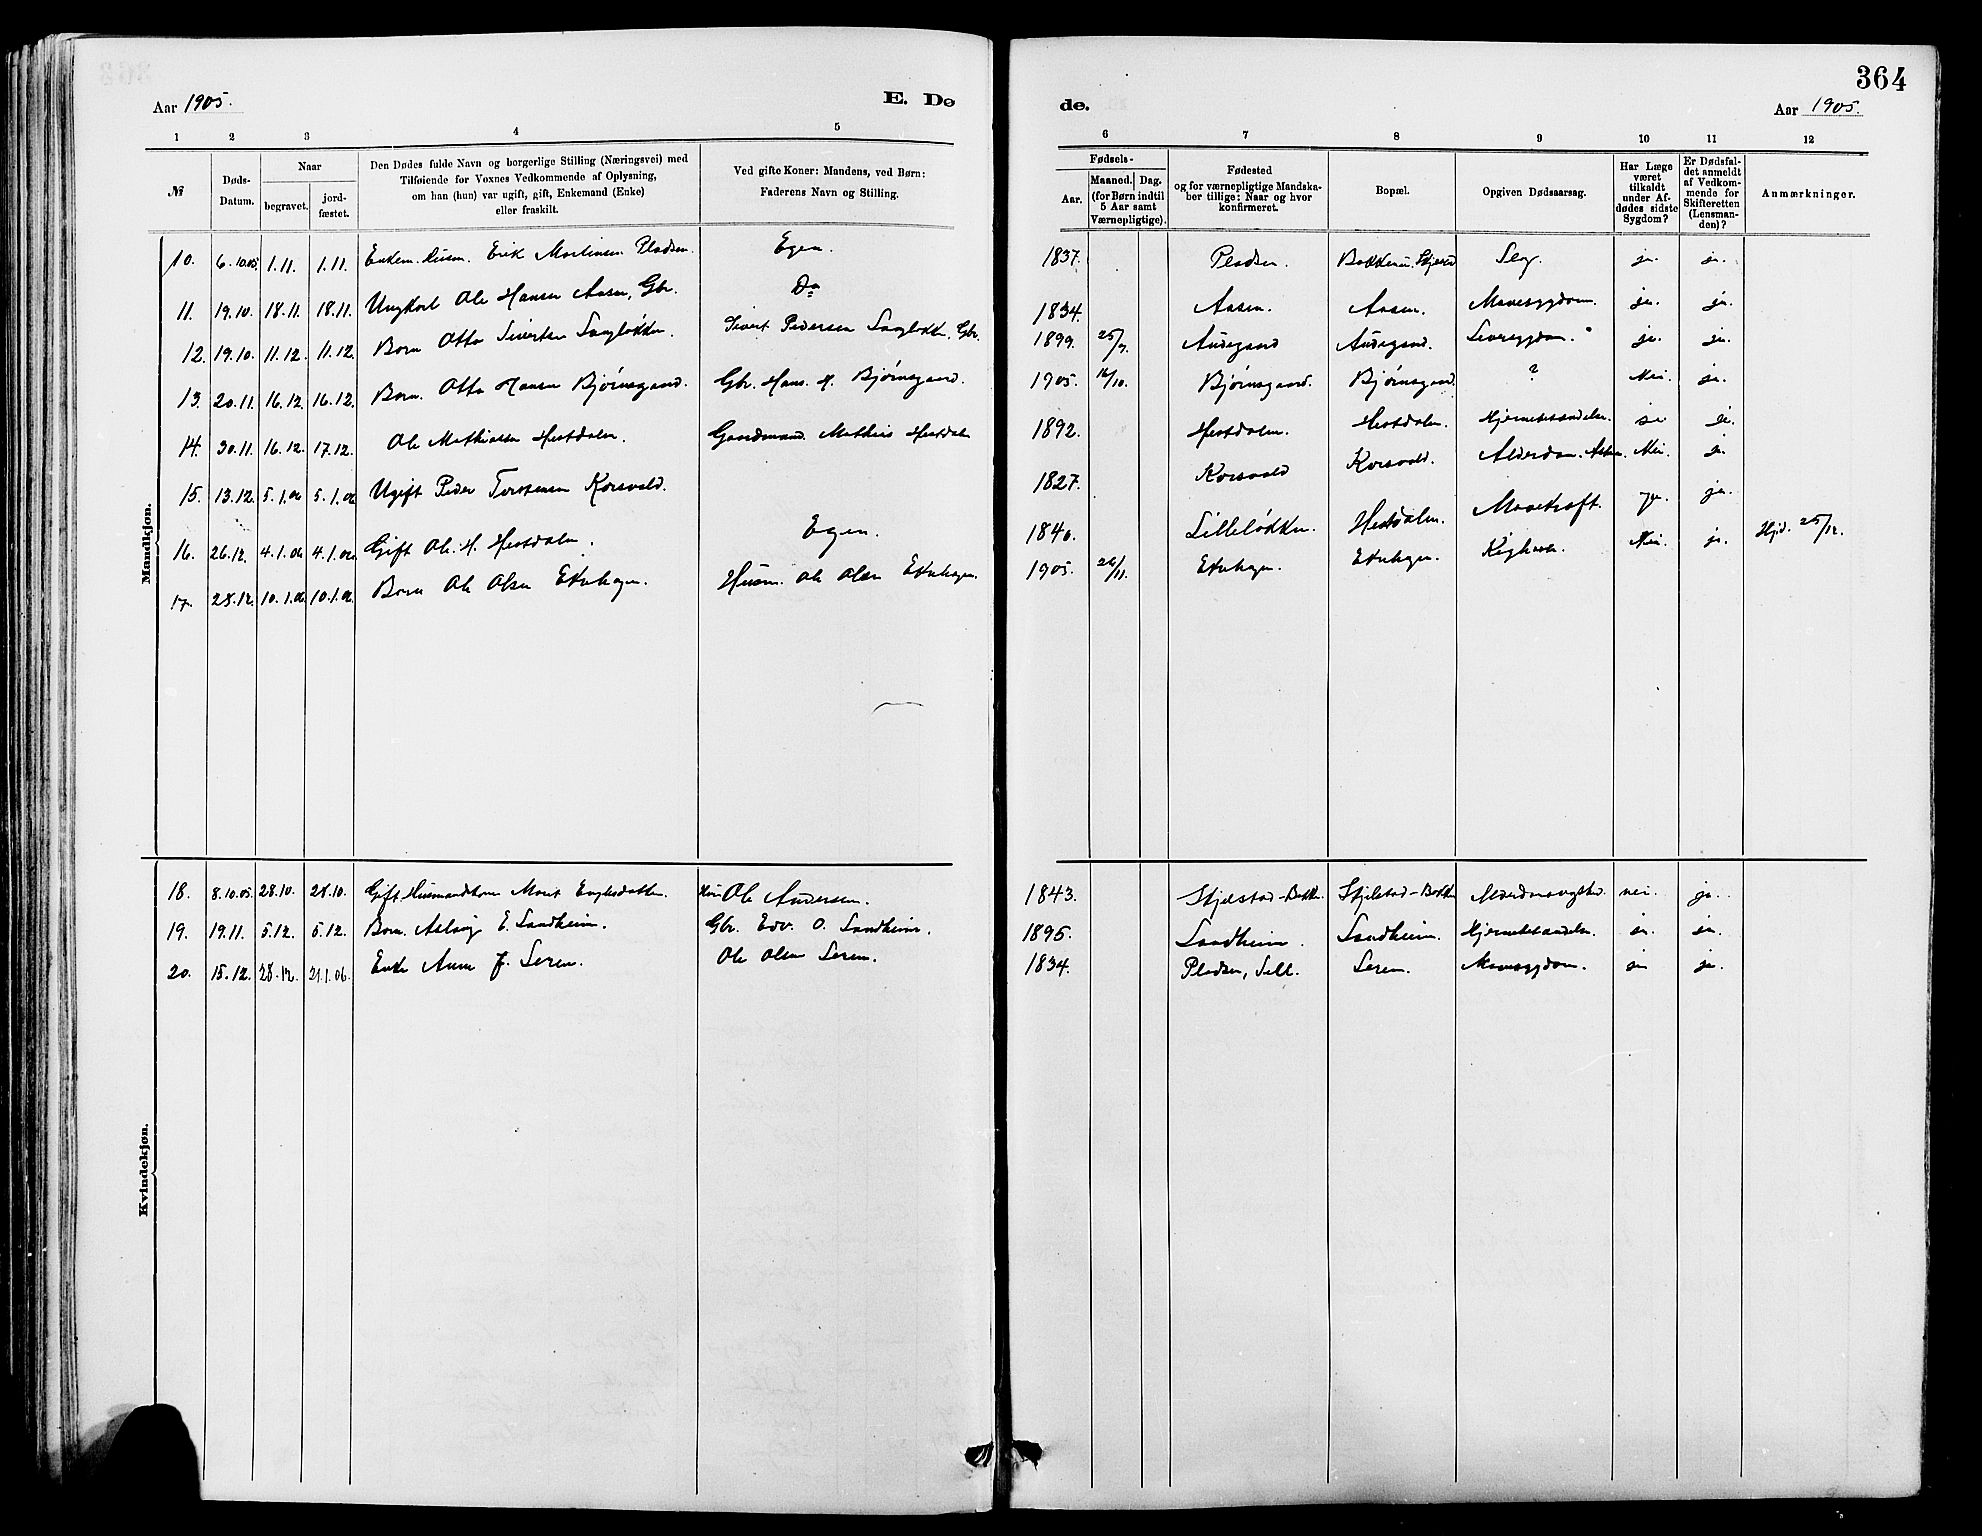 364
Aar 1905.
E. Dø
de.
Aar 1905.
1 2 3 4 5 6 7 8 9 10 11 12
№
Døds-Datum.
Naar
begravet.
jord-fæstet.
Den Dødes fulde Navn og borgerlige Stilling (Næringsvei) med
Tilføiende for Voxnes Vedkommende af Oplysning,
om han (hun) var ugift, gift, Enkemand (Enke)
eller fraskilt.
Ved gifte Koner: Mandens, ved Børn:
Faderens Navn og Stilling.
Fødsels-
Aar.
Maaned. Dag.
(for Børn indtil
5 Aar samt
Værnepligtige).
Fødested
og for værnepligtige Mandska-
ber tillige: Naar og hvor
konfirmeret.
Bopæl.
Opgiven Dødsaarsag.
Har Læge
været
tilkaldt
under Af-
dødes sidste
Sygdom?
Er Dødsfal-
det anmeldt
af Vedkom-
mende for
Skifteretten
(Lensman-
den)?
Anmærkninger.
Mandkjøn.
10. 6.10.05. 1.11. 1.11. Enkem. Husm. Erik Martinsen Pladsen. Egen. 1837. Pladsen Slag. ja. ja.
11. 19.10. 18.11. 18.11. Ungkarl Ole Hansen Aasen, Gbr. Do 1834. Aasen. Aasen. Mavesygdom. ja. ja.
12. 19.10. 11.12. 11.12. Barn Otto Sivertsen Sivert Pedersen Gbr. 1899. 25/7. Audegaard Audegaard. Leversygdom. ja. ja.
13. 20.11. 16.12. 16.12. Barn. Otto Hansen Bjørnsgaard. Gbr. Hans. H. Bjørnsgaard. 1905. 16/10. Bjørnsgaard. Bjørnsgaard. ? Nei. ja.
14. 30.11. 16.12. 17.12. Ole Mathiassen Hestdalen. Gaardmand Mathias Hestdalen 1892. Hestdalen. Hestdalen. Hjernebetændelse. ja ja.
15. 13.12. 5.1.06 5.1.06 Ugift Peder Torstensen Korsvold. 1827. Korsvold Korsvold. Alderdom. Nei. ja.
16. 26.12. 4.1.06 4.1.06 Gift Ole H. Hestdalen. Egen. 1840. Lilleløkken. Hestdalen. Mavekræft. ja. ja.
17. 28.12. 10.1.06 10.1.06 Barn Ole Olsen Ekrehagen. Husm. Ole Olsen Ekrehagen. 1905. 26/11. Ekrehagen. Ekrehagen. Kighoste. Nei. ja. Hjd. 25/12.
Kvindekjøn.
18. 8.10.05 28.10. 28.10. Gift Husmandkone Marit Engebretsdatter Ole Andersen. 1843. nei. ja.
19. 19.11. 5.12. 5.12. Barn Aslaug E. Sandheim. Gbr. Edv. O. Sandheim. 1895. Sandheim. Sandheim. Hjernebetændelse. ja. ja.
20. 15.12. 28.12. 21.1.06. Enke Anne J. Seren. Ole Olsen Seren. 1834. Pladsen, Sell. Seren. Mavesygdom. ja ja.